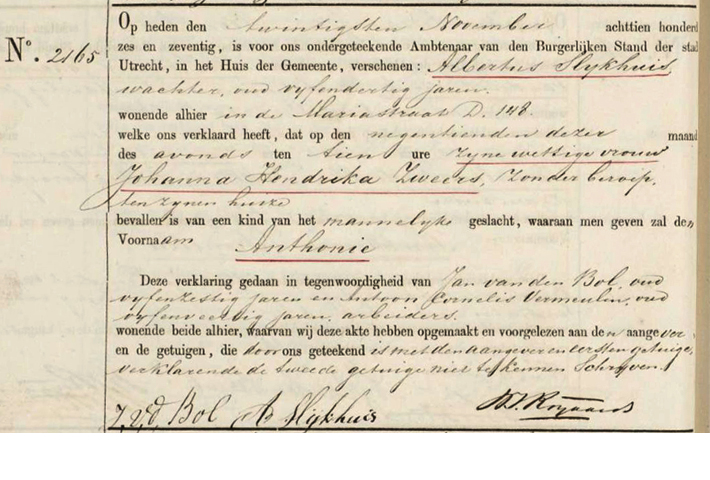 Nº. 2165
Op heden den twintigsten November achttien honderd
zes en zeventig, is voor ons ondergeteekende Ambtenaar van den Burgerlijken Stand der stad
Utrecht, in het Huis der Gemeente, verschenen: Albertus Slykhuis
wachter, oud vyfendertig jaren.
wonende alhier in de Mariastraat D. 148.
welke ons verklaard heeft, dat op den negentienden dezer maand
des avonds ten tien ure zyne wettige vrouw
Johanna Hendrika Zweers, zonder beroep,
ten zynen huize
bevallen is van een kind van het mannelyke geslacht, waaraan men geven zal den
Voornaam Anthonie
Deze verklaring gedaan in tegenwoordigheid van Jan van den Bol, oud
vyfenzestig jaren en Antoon Cornelis Vermeulen, oud
vyfenveertig jaren, arbeiders.
wonende beide alhier, waarvan wij deze akte hebben opgemaakt en voorgelezen aan den aangever
en de getuigen, die door ons geteekend is met den aangever en eersten getuige,
verklarende de tweede getuige niet te kennen Schryven.
J. v. d. Bol A Slykhuis Royaards